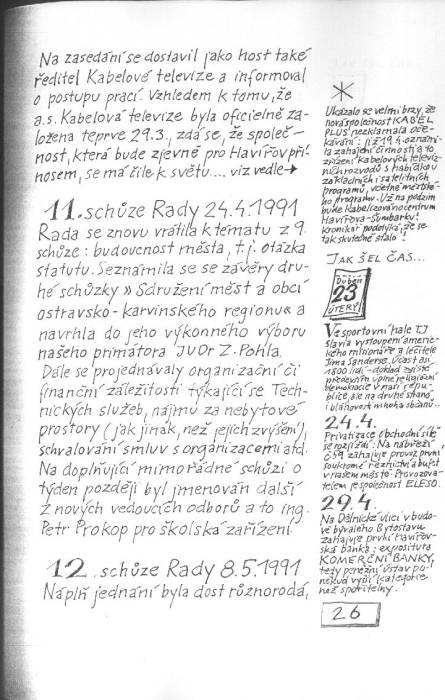 Na zasedání se dostavil jako host také
ředitel Kabelové televize a informoval
o postupu prací. Vzhledem k tomu, že
a.s. Kabelová televize byla oficielně za-
ložena teprve 29.3., zdá se, že společ-
nost, která bude zjevně pro Havířov pří-
nosem, se má čile k světu.... viz vedle→
11. schůze Rady 24.4.1991
Rada se znovu vrátila k tématu z 9.
schůze: budoucnost města, t.j. otázka
statutu. Seznámila se se závěry dru-
hé schůzky » Sdružení měst a obcí
ostravsko-karvinského regionu« a
navrhla do jeho výkonného výboru
našeho primátora JUDr Z. Pohla.
Dále se projednávaly organizační či
finanční záležitosti týkající se Tech-
nických služeb, nájmů za nebytové
prostory (jak jinak, než jejich zvýšení),
schvalování smluv s organizacemi atd.
Na doplňující mimořádné schůzi o
týden později byl jmenován další
z nových vedoucích odborů a to ing.
Petr Prokop pro školská zařízení.
12. schůze Rady 8.5.1991
Náplň jednání byla dost různorodá,
*
Ukázalo se velmi brzy, že
nová společnost KABEL
PLUS nezklamala oče-
kávání: již 19.4. oznámi-
la zahájení činnosti a to
zřízení kabelových televiz-
ních rozvodů s nabídkou
základních i satelitních
programů, včetně městské-
ho programu. Už na podzim
bude kabelizováno centrum
Havířova-Šumbarku!
kronikář podotýká, že se
tak skutečně stalo!
JAK ŠEL ČAS...
Duben
23
ÚTERÝ
Ve sportovní hale TJ
Slavia vystoupení americ-
kého misionáře a léčitele
Jima Sanderse. Účast an.
1800 lidí - doklad zajisté
především úplné religijní
demokracie v naší repu-
blice, ale na druhé straně
i bláhovosti mnoha občanů..
24.4.
Privatizace obchodní sítě
se rozjíždí: Na nábřeží,
č.59 zahajuje provoz první
soukromé řeznictví a bufet
v našem městě. Provozova-
telem je společnost ELESO.
29.4.
Na Dělnické ulici v budo-
vě bývalého Bytostavu
zahajuje první havířov-
ská banka: expositura
KOMERČNÍ BANKY,
tedy peněžní ústav po-
někud vyšší kategorie
než spořitelny.
26